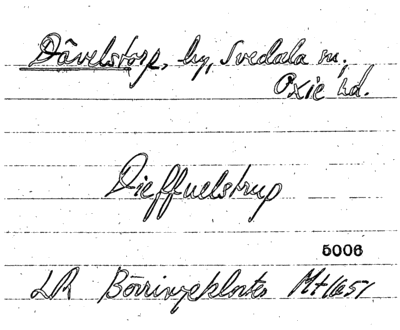 Dävelstorp, by, Svedala sn,
Oxie hd.
Dieffuelstrup
5006
LR Börringekloster Mt 1651